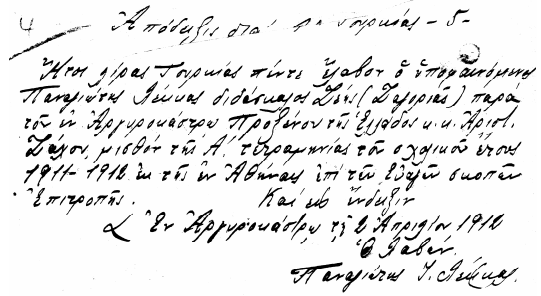 4
Ἀπόδειξις διά λίρ. Τουρκίας - 5 -
Ἤτοι λίρας Τουρκίας πέντε ἔλαβον ὁ ὑποφαινόμενος
Παναγιώτης Λέκκας διδάσκαλος Ζέης (Ζαγοριᾶς) παρά
τοῦ ἐν Ἀργυροκάστρῳ Προξένου τῆς Ἑλλάδος κ. κ. Ἀριστ.
μισθόν τῆς Α΄. τετραμηνίας τοῦ σχολικοῦ ἔτους
1911-1912 ἐκ τῆς ἐν Ἀθήναις ἐπί τῶν σκοπῶν
Ἐπιτροπῆς. Καί εἰς ἔνδειξιν
Ἐν Ἀργυροκάστρῳ τῇ 2 Ἀπριλίου 1912
Ὁ λαβών.
Παναγιώτης Ι. Λέκκας